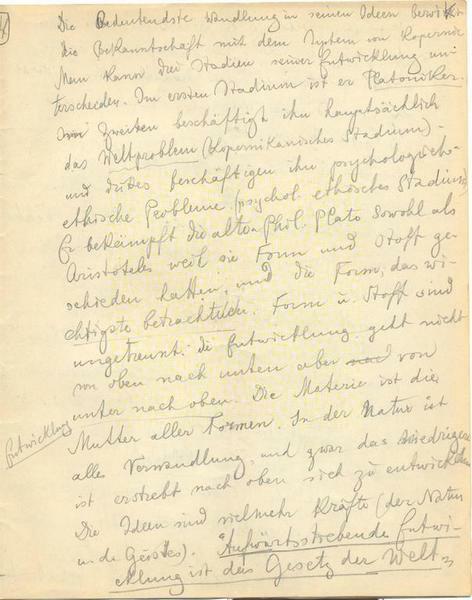 Die Bedeutendste Wandlung in seinen Ideen bewirkt
die Bekanntschaft mit dem System von Kopernik.
Man kann drei Stadien seiner Entwicklung un-
terscheiden. Im ersten Stadium ist er Platoniker.
Im zweiten beschäftigt ihn hauptsächlich
das Weltproblem (Kopernikanisches Stadium)-
und drittes beschäftigen ihn psychologisch-
ethische Probleme (psychol. ethisches Stadium
Er bekämpft die alten Phil. Plato sowohl als
Aristoteles weil sie Form und Stoff ge-
schieden hatten, und die Form, das wi-
chtigste betrachteten. Form u. Stoff sind
ungetrennt: die Entwicklung geht nicht
von oben nach unten aber von
unter nach oben. Die Materie ist die
Entwicklung
Mutter aller Formen. In der Natur ist
alles Verwandlung und zwar das Niedrigere
ist erstrebt nach oben sich zu entwickeln
Die Ideen sind vielmehr Kräfte (der Natur
u. de Geistes). "Aufwärtsstrebende Entwi-
cklung ist das Gesetz der Welt"